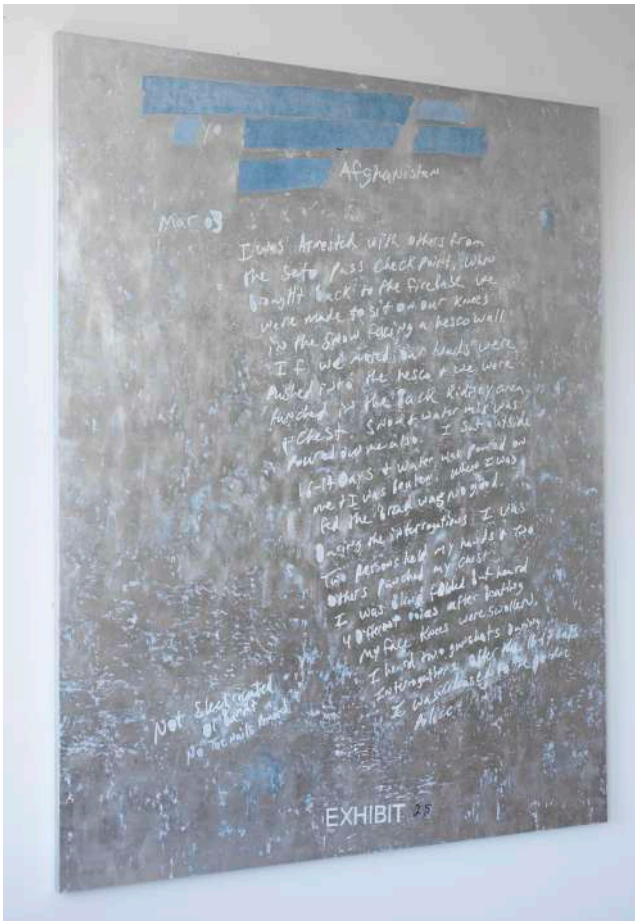 yo
Afghanistan
Mar 03
I was Arrested with others from
the Seto pass Check point, when
brought back to the firebase we
were made to sit on our knees
in the snow facing a hesco wall
If we moved our heads were
pushed into the hesco & we were
punched in the back Kidney area
& chest. Snow & water mix was
poured on me also. I sat outside
Days & water was poured on
me & I was beaten. When I was
fed the bread was no good.
During the interrogations I was
Two persons held my hands & two
others punched my chest.
I was blind folded but heard
4 Different voices after beating
my face knees were swollen,
I heard two gunshots During
Interrogations. After the days
I was released to the
Police
Not Electricuted
or
No Toenails
EXHIBIT 28